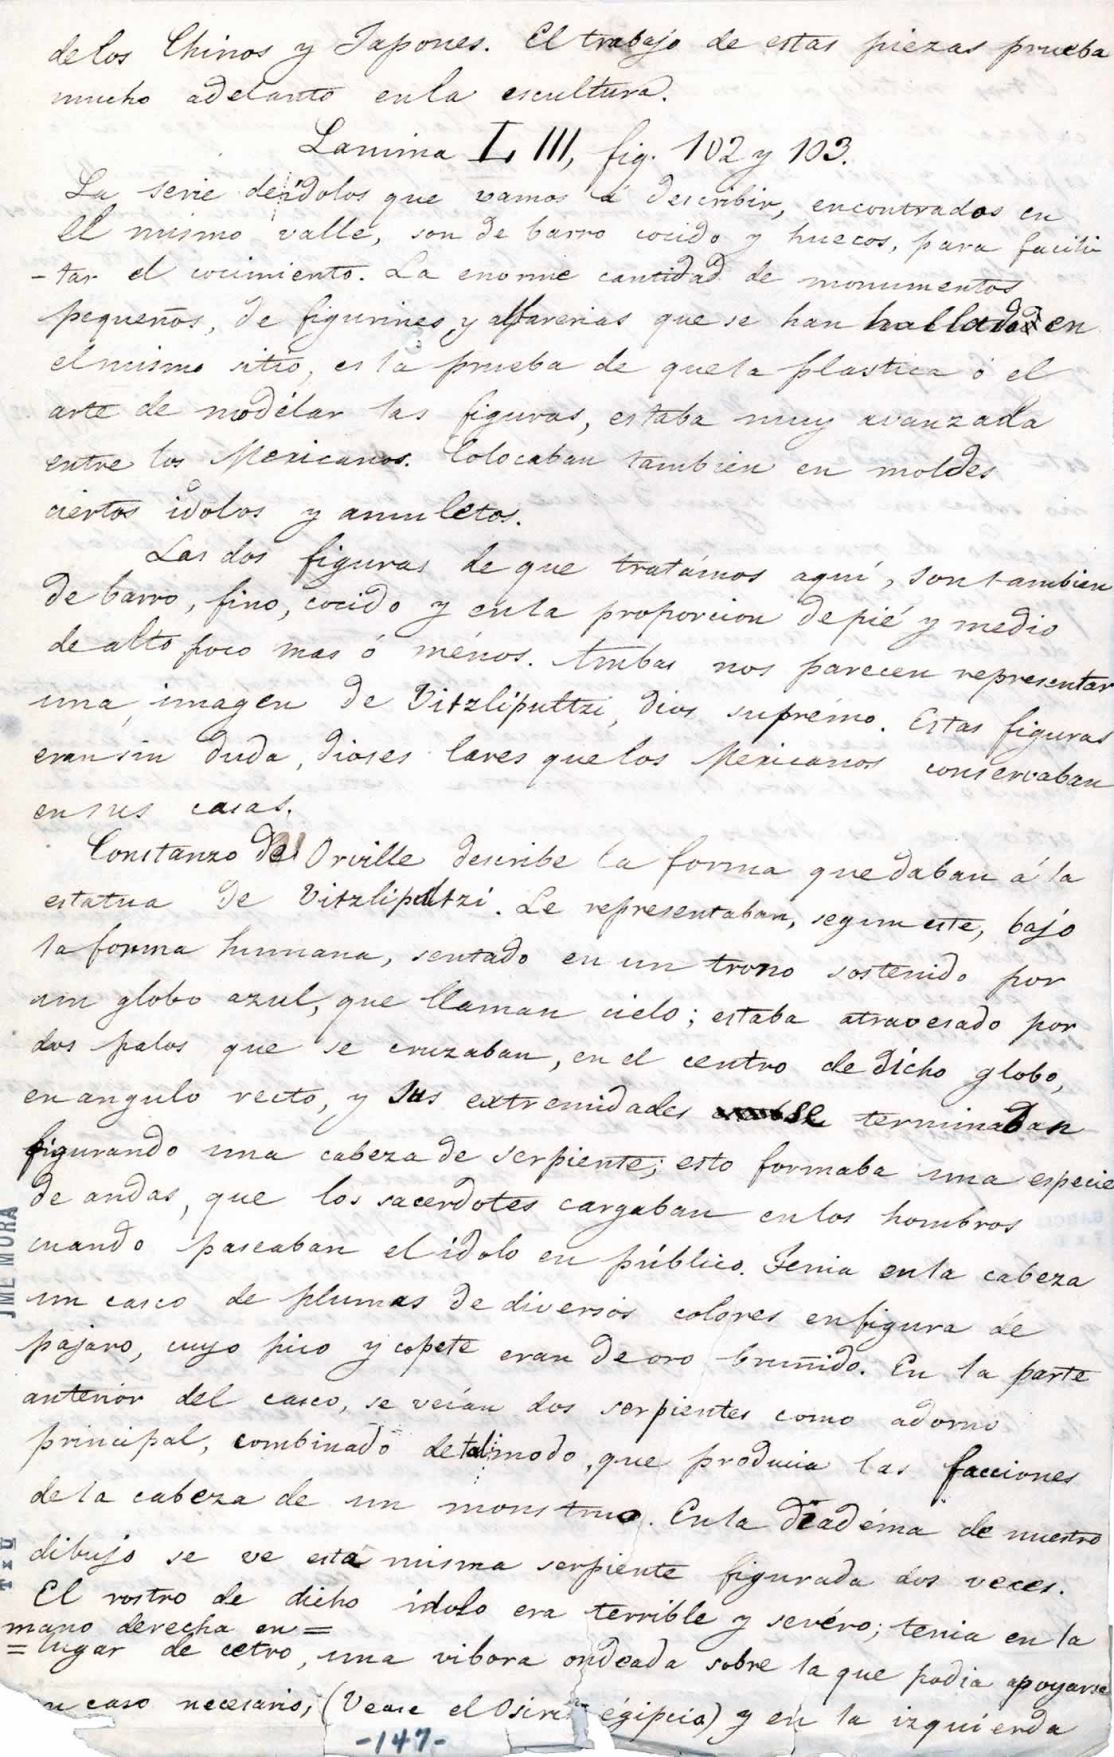 de los Chinos y Japones. El trabajo de estas piezas prueba
mucho adelanto en la escultura.
Lamina L III, fig. 102 y 103.
La serie de idolos que vamos á describir, encontrados en
el mismo valle, son de barro cocido y huecos, para facili
-tar el cocimiento. La enorme cantidad de monumentos
pequeños, de figurines, y alfarerias que se han hallado en
el mismo sitio, es la prueba de que la plastica ó el
arte de modélar las figuras, estaba muy avanzada
entre los Mexicanos. Colocaban tambien en moldes
ciertos idolos y amuletos.
Las dos figuras de que tratámos aquí, son tambien
de barro, fino, cocido y en la proporcion de pié y medio
de alto poco mas ó ménos. Ambas nos parecen representar
una imagen de Vitzliputtzi, dios suprémo. Estas figuras
eran sin duda, dioses lares que los Mexicanos conservaban
en sus casas.
Constanzo de Orville describe la forma que daban á la
estatua de Vitzliputzi. Le representaban, segun este, bajo
la forma humana, sentado en un trono sostenido por
un globo azul, que llaman cielo; estaba atravesado por
dos palos que se cruzaban, en el centro de dicho globo,
en angulo recto, y sus extremidades se terminaban
figurando una cabeza de serpiente; esto formaba una especie
de andas, que los sacerdotes cargaban en los hombros
cuando paseaban el idolo en público. Tenia en la cabeza
un casco de plumas de diversos colores en figura de
pajaro, cuyo pico y copete eran de oro bruñido. En la parte
anterior del casco, se veían dos serpientes como adorno
principal, combinado de tal modo, que producia las facciones
de la cabeza de un monstruo. En la diadéma de nuestro
dibujo se ve esta misma serpiente figurada dos veces.
El rostro de dicho idolo era terrible y sevéro; tenia en la
mano derecha en =
= lugar de cetro, una vibora ondeada sobre la que podia apoyarse
en caso necesario, (Vease el Osiris égipcio) y en la izquierda
-147-
JME MORA